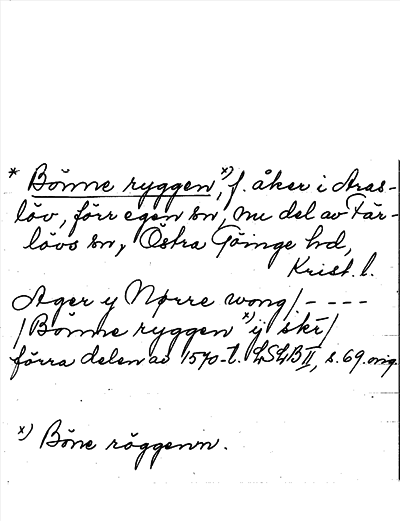 * Bönne ryggen x), f. åker i Aras-
löv, förr egen sn, nu del av Fär-
lövs sn, Östra Göinge hd,
Krist. l.
Ager y Nørre wong /- - - -
/ Bönne ryggen x) ÿ skr̄ /
förra delen av 1570-t. LSLB II, s. 69. orig.
x) Böne röggenn.